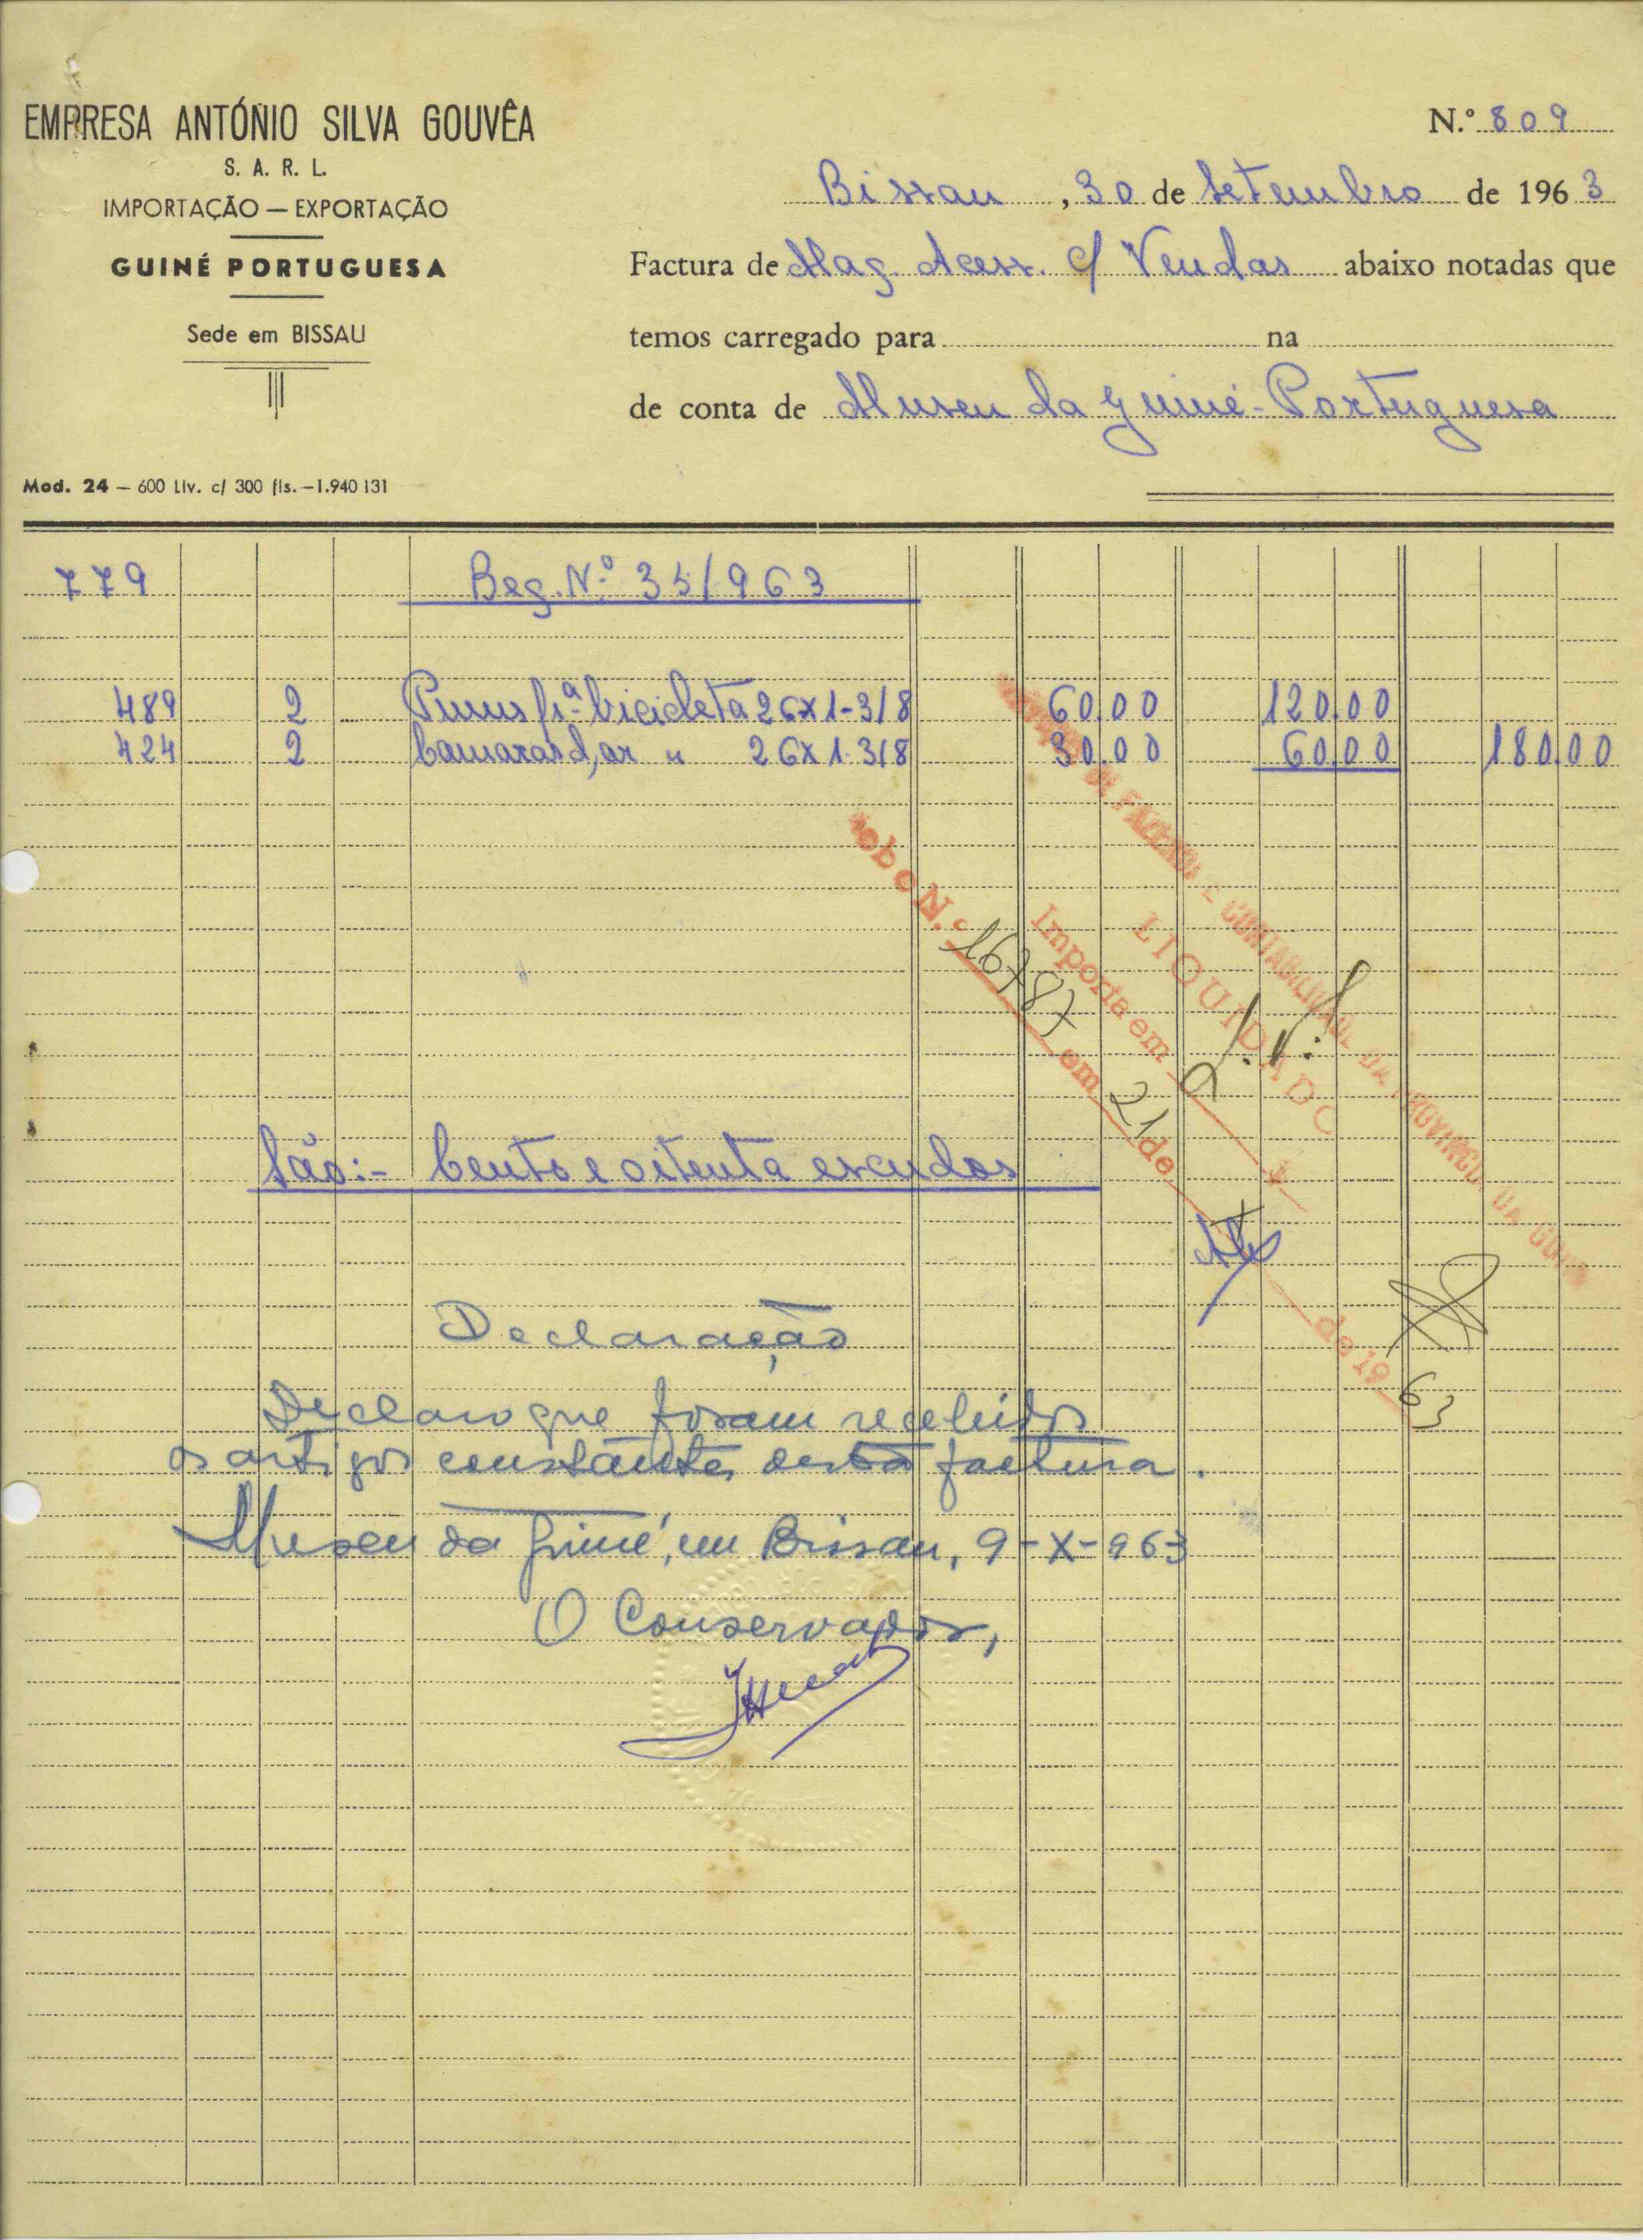 EMPRESA ANTÓNIO SILVA GOUVÊA
S. A. R. L.
IMPORTAÇÃO — EXPORTAÇÃO
GUINÉ PORTUGUESA
Sede em BISSAU
Mod. 24 — 600 Liv. c/ 300 fls. — 1.940 131
N.º 809
Bissau, 30 de Setembro de 1963
Factura de Mag. Acess. c/ Vendas abaixo notadas que
temos carregado para na
de conta de Museu da Guiné-Portuguesa
779 Reg. Nº 35/963
489 2 Pneus p.ª bicicleta 26x1-3/8 60.00 120.00
424 2 Camaras d,ar " 26x1.3/8 30.00 60.00 180.00
DE FAZENDA E CONTABILIDADE DA PROVINCIA DA GUINÉ
LIQUIDADO
Importa em
N.º 16787 em 21 de de 1963
São:- Cento e oitenta escudos
Declaração
Declaro que foram recebidos
os artigos constantes desta factura.
Museu da Guiné, em Bissau, 9-X-963
O Conservador,